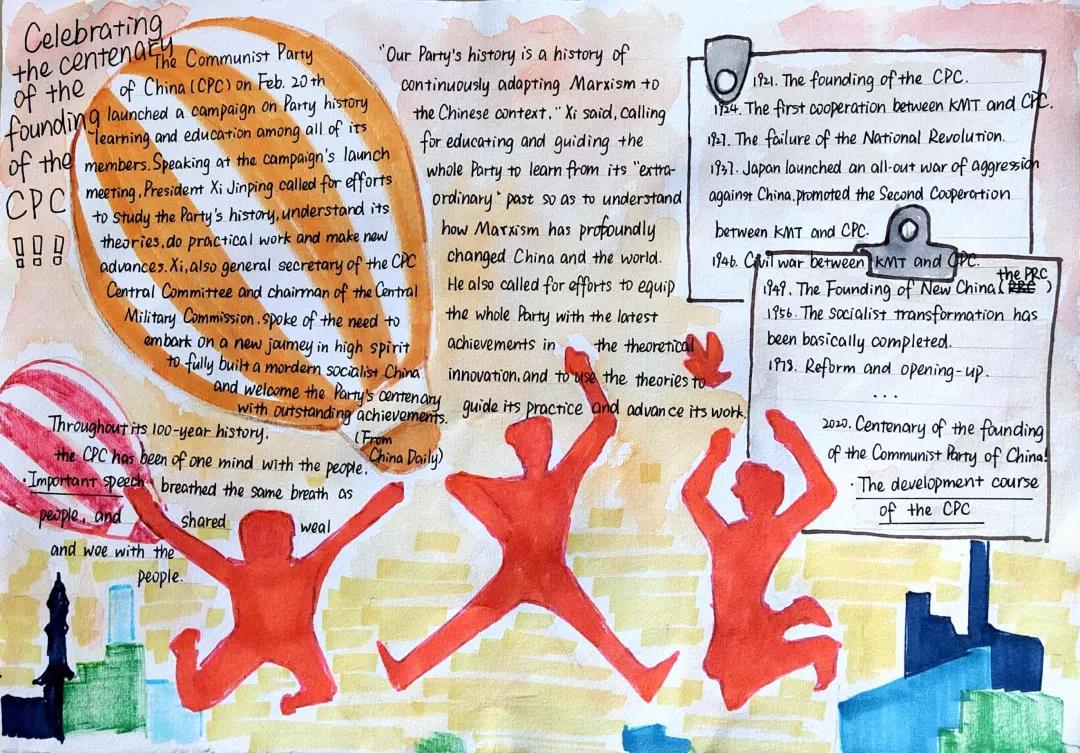 Celebrating
the centenary
of the
founding
of the
CPC
!!!
The Communist Party
of China (CPC) on Feb. 20th
launched a campaign on Party history
learning and education among all of its
members. Speaking at the campaign's launch
meeting, President Xi Jinping called for efforts
to study the Party's history, understand its
theories, do practical work and make new
advances. Xi, also general secretary of the CPC
Central Committee and chairman of the Central
Military Commission, spoke of the need to
embark on a new journey in high spirit
to fully built a mordern socialist China
and welcome the Party's centenary
with outstanding achievements.
(From
China Daily)
"Our Party's history is a history of
continuously adapting Marxism to
the Chinese context," Xi said, calling
for educating and guiding the
whole Party to learn from its "extra-
ordinary" past so as to understand
how Marxism has profoundly
changed China and the world.
He also called for efforts to equip
the whole Party with the latest
achievements in the theoretical
innovation, and to use the theories to
guide its practice and advance its work.
Throughout its 100-year history,
the CPC has been of one mind with the people,
·Important speech breathed the same breath as
people, and shared weal
and woe with the
people.
1921. The founding of the CPC.
1924. The first cooperation between KMT and CPC.
1927. The failure of the National Revolution.
1937. Japan launched an all-out war of aggression
against China, promoted the Second Cooperation
between KMT and CPC.
1946. Civil war between KMT and CPC.
the PRC
1949. The Founding of New China ( )
1956. The socialist transformation has
been basically completed.
1978. Reform and opening-up.
...
2020. Centenary of the founding
of the Communist Party of China!
·The development course
of the CPC